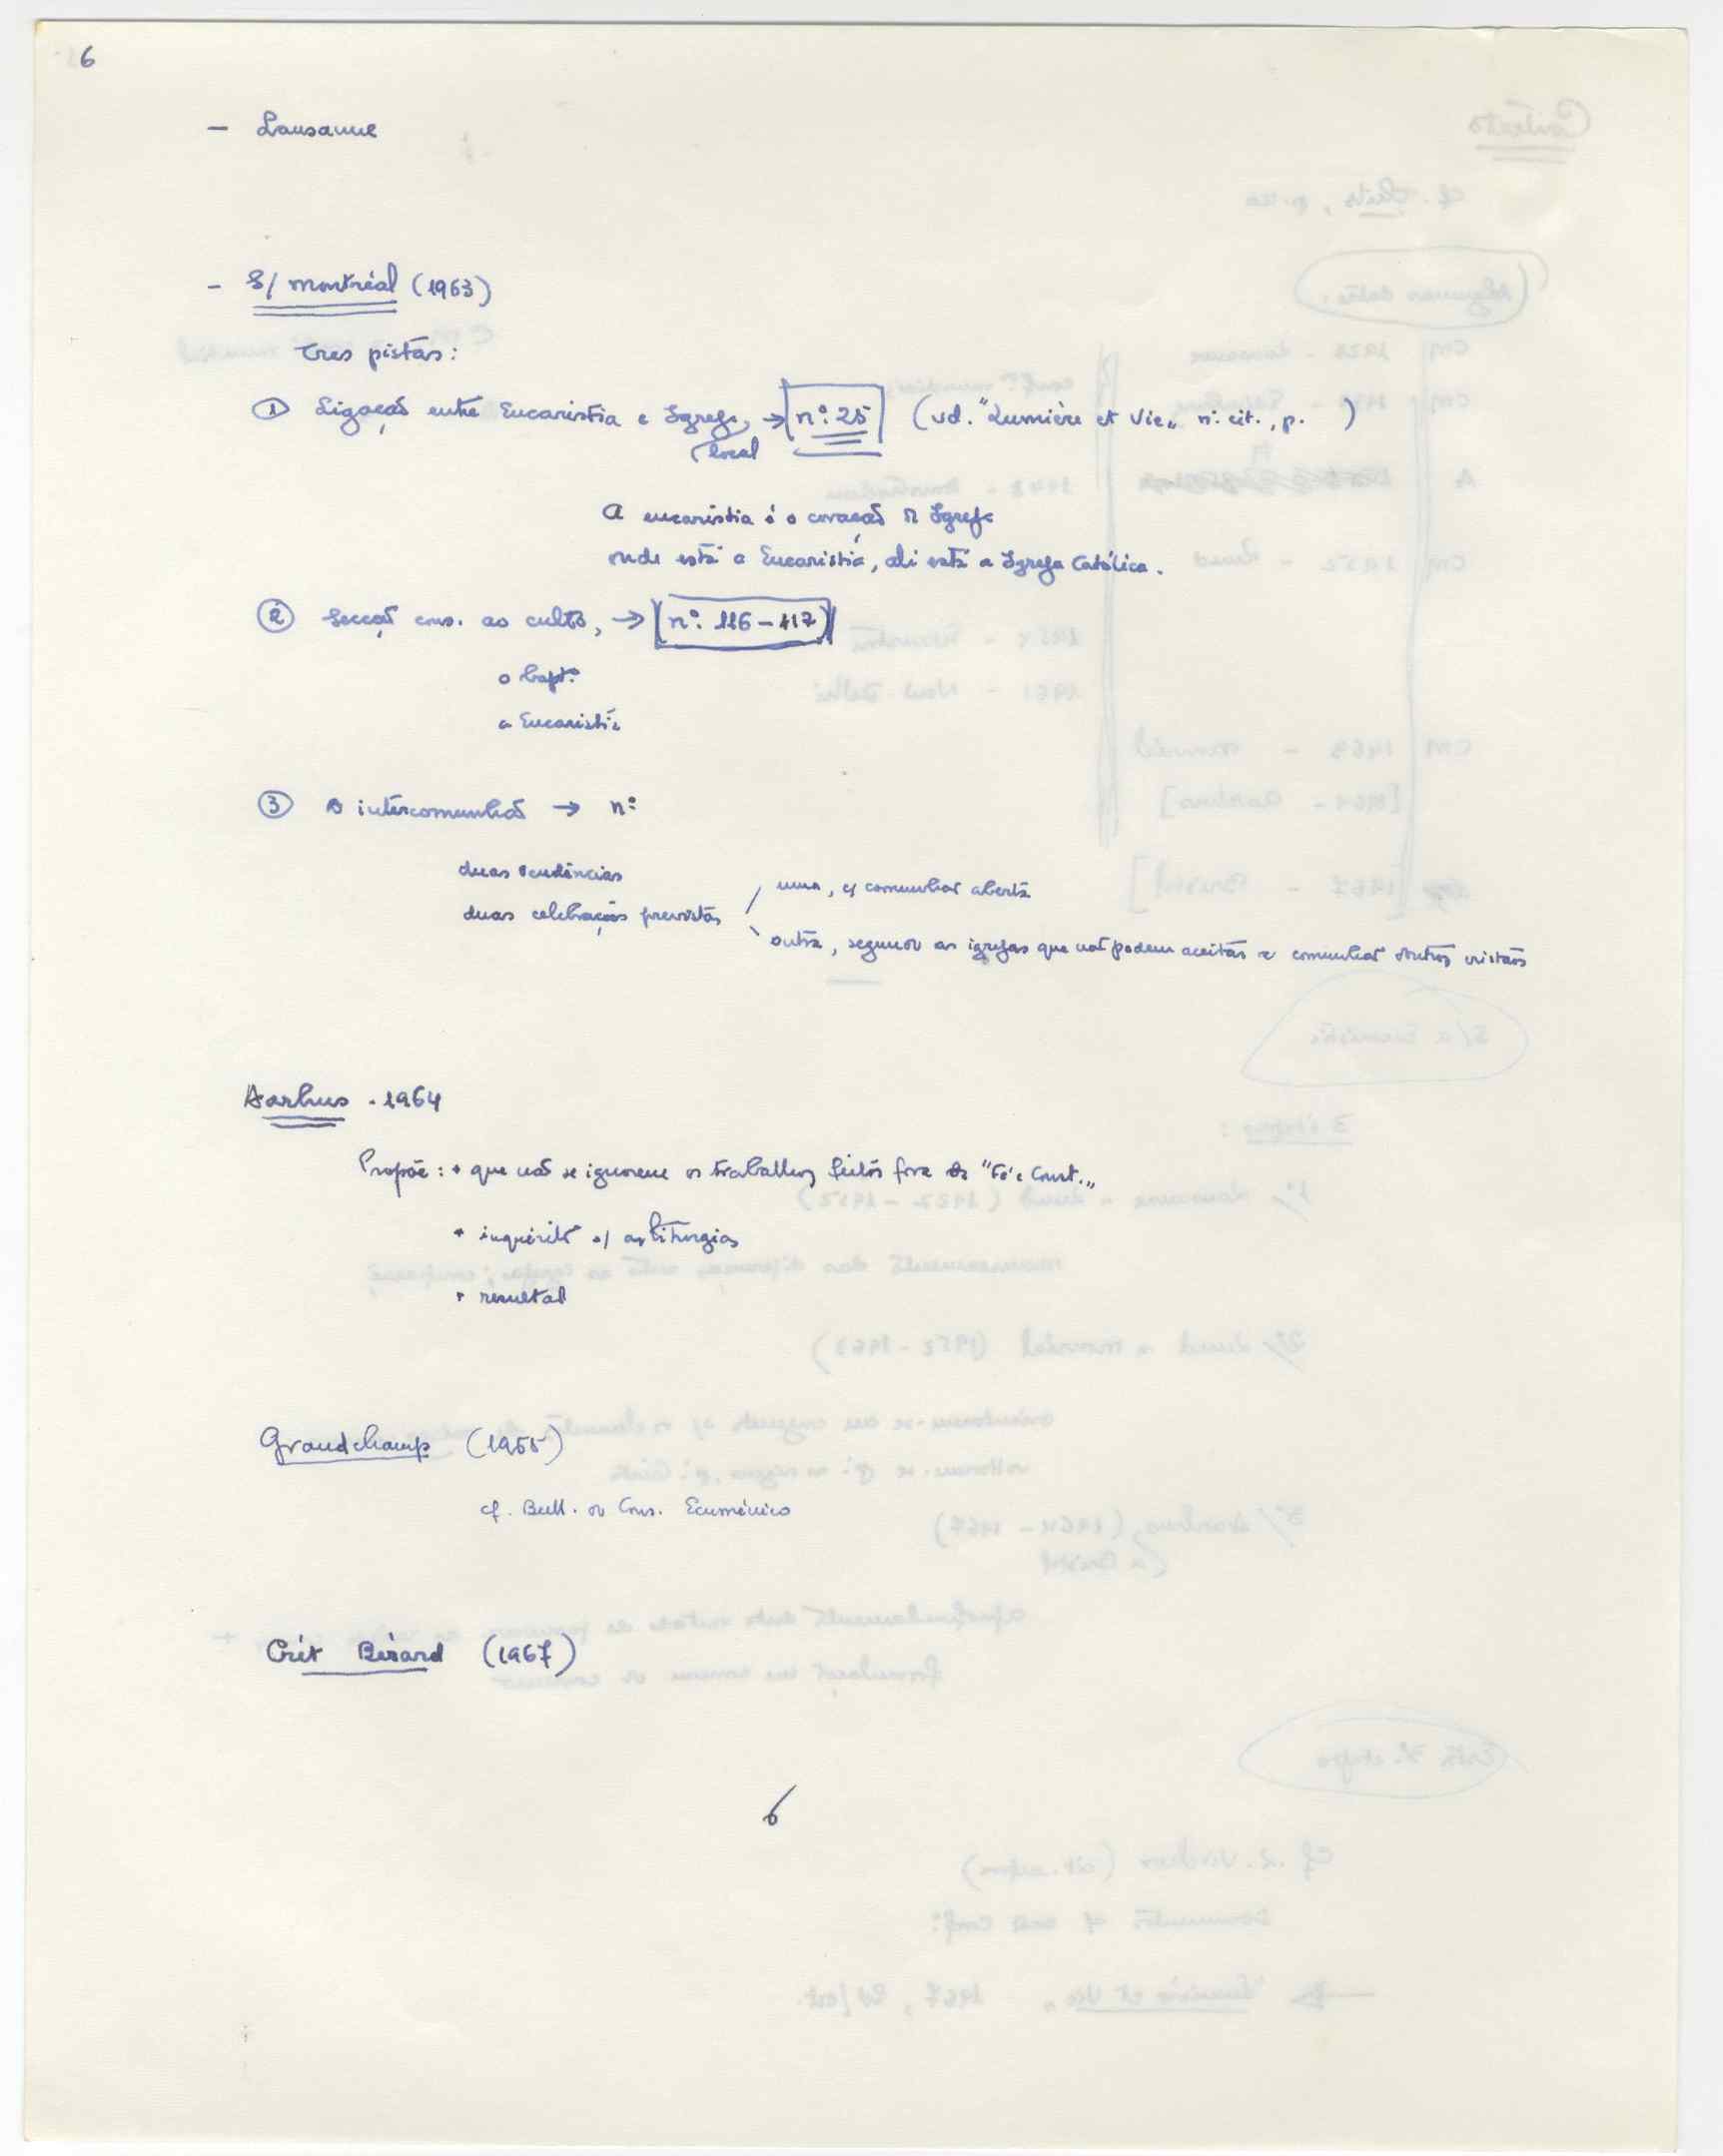 6
- Lausanne
- S/ Montréal (1963)
Tres pistas:
① Ligação entre Eucaristia e Igreja, → n.º 25 (vd. "Lumière et Vie" n. cit., p. )
local
A eucaristia é o coração da Igreja
onde está a Eucaristia, ali está a Igreja Católica.
② Secção cons. ao culto, → (n.º 116-117)
o bapt.º
a Eucaristia
③ A intercomunhão → n.º
duas tendências
duas celebrações previstas
uma, c/ comunhão aberta
outra, segundo as igrejas que não podem aceitar a comunhão outros cristãos
Aarhus - 1964
Propõe: • que não se ignorem os trabalhos feitos fora da "Fé e Const."
• inquérito s/ as liturgias
• resultad
Grandchamp (1965)
cf. Bull. do Cons. Ecuménico
Crêt Bérard (1967)
6